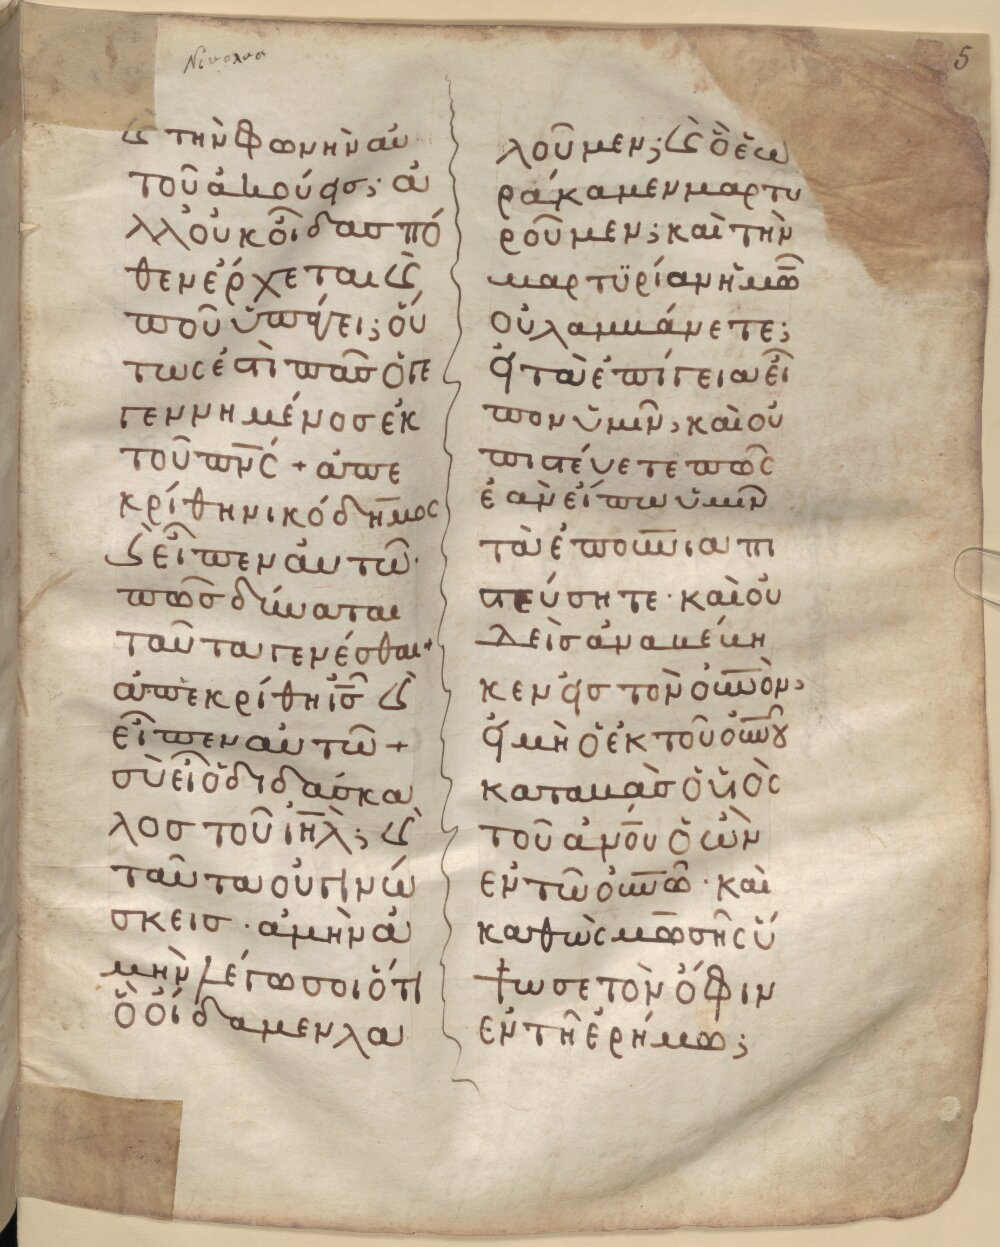 Νικολαοσ
5
ϗ τὴν φωνὴν αὐ
τοῦ ἀκούεισ; ἀ
λλ οὐκ οἶδασ πό
θεν ἔρχεται ϗ
ποῦ ὑπάγει; οὕ
τωσ ἐστὶ πᾶσ ὁ γε
γεννημένοσ ἐκ
τοῦ πν̅ς + ἀπε
κρίθη νικόδημος
ϗ εἶπεν αὐτῶ·
πῶσ δύναται
ταῦτα γενέσθαι +
ἀπεκρίθη ἰ̅σ ϗ
εἶπεν αὐτῶ +
σὺ εἶ ὁ διδάσκα
λοσ τοῦ ἰη̅λ; ϗ
ταῦτα οὐ γινώ
σκεισ · ἀμὴν ἀ
μὴν λέγω σοι ὅτι
ὃ οἴδαμεν λα
λοῦμεν; ϗ ὃ ἑω
ράκαμεν μαρτυ
ροῦμεν; καὶ τὴν
μαρτυρίαν ἡμῶ̅
οὐ λαμβάνετε;
εἰ τὰ ἐπίγεια εἶ
πον ὑμῖν, καὶ οὐ
πιστέυετε πῶς
ἐὰν εἴπω ὑμῖν
τὰ ἐπου̅νια πι
στεύσητε · καὶ οὐ
δεὶσ ἀναβέβη
κεν εἰσ τὸν οὐ̅νὸν,
εἰ μὴ ὁ ἐκ τοῦ οὐ̅νου
καταβὰσ ὁ υἱὸς
τοῦ ἀ̅νου ὁ ὢν
ἐν τῶ οὐ̅νω · καὶ
καθὼς μω̅σῆς ὕ
ψωσε τὸν ὄφιν
ἐν τῆ ἐρήμω;